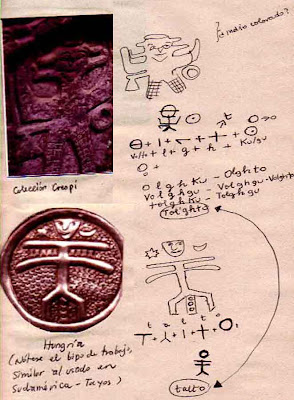 ¿indio colorado?
Colección Crespi
+ l + g + h + Ku/gu
O l g h Ku - Olghto
Volghgu - Volghto
tolghKu - Tolghgu
Tol'ghto
Hungría
(Nótese el tipo de trabajo,
Similar al usado en
Sudamérica - Tayos)
talto